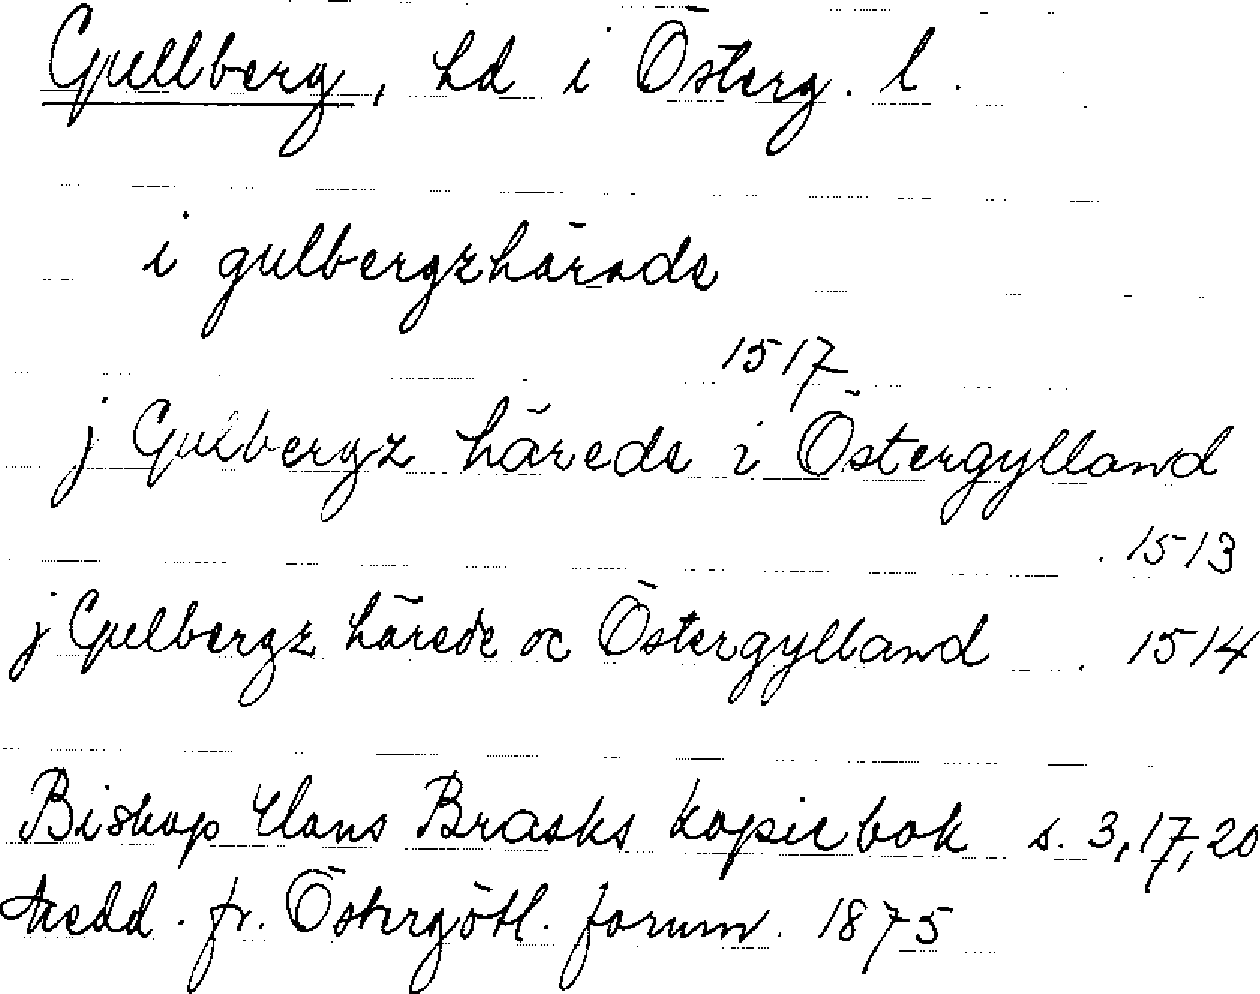 Gullberg, hd i Österg. l.
i gulbergzhärade
1517
j Gulbergz härede i Östergylland
1513
j Gulbergz härede oc Östergylland 1514
Biskop Hans Brasks kopiebok s. 3, 17, 20
Medd. fr. Östergötl. fornm. 1875